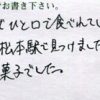 お書き下さい。
ぜひと口で食べれてい
松本駅で見つけました
菓子でした。